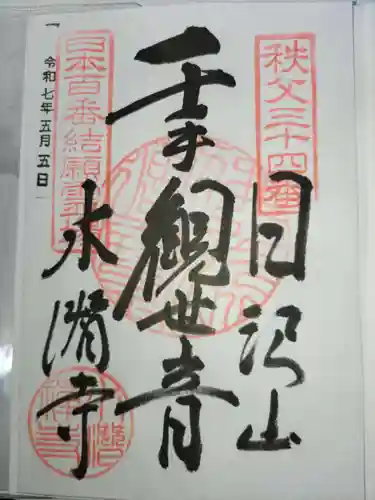 秩父三十四番
日沢山
千手觀世音
日本百番結願霊場
水潜寺
令和七年五月五日